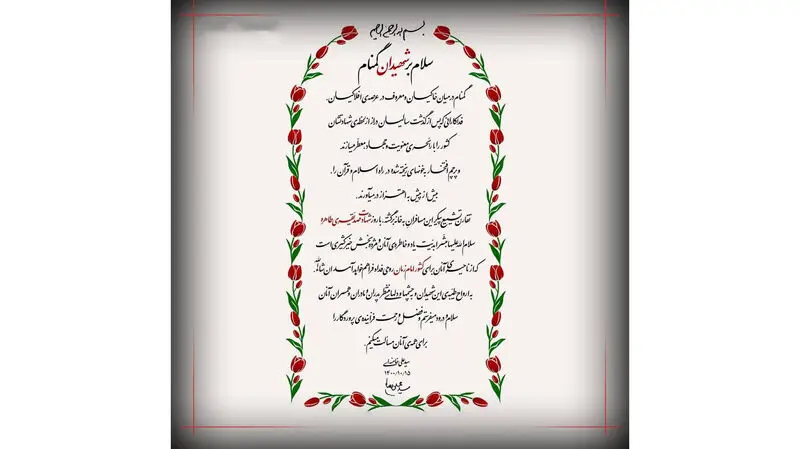 بسم الله الرحمن الرحیم
سلام بر شهیدان گمنام
گمنام در میان خاکیان و معروف در عرصه‌ی افلاکیان.
فداکارانی که پس از گذشت سالیان دراز از لحظه‌ی شهادتشان
کشور را با رائحه‌ی معنویت و جهاد معطّر میسازند
و پرچم افتخار به خونهای ریخته شده در راه اسلام و قرآن را.
بیش از پیش به اهتزاز در میآورند.
تقارن تشییع پیکر این مسافران به خانه برگشته. با روز شهادت صدیقه‌ی طاهره
سلام الله علیها مبشر اهدائیت یاد و خاطره‌ی آنان و مژده بخش خیر کثیری است
که از ناحیه‌ی آنان برای کشور امام زمان روحی فداه فراهم خواهد آمد ان شاءالله.
به ارواح طیّبه‌ی این شهیدان و به چشمها و دلهای منتظر پدران و مادران و همسران آنان
سلام و درود میفرستم و فضل و رحمت فزاینده‌ی پروردگار را
برای همه‌ی آنان مسألت میکنم.
سید علی خامنه‌ای
۱۴۰۰/۱۰/۱۵